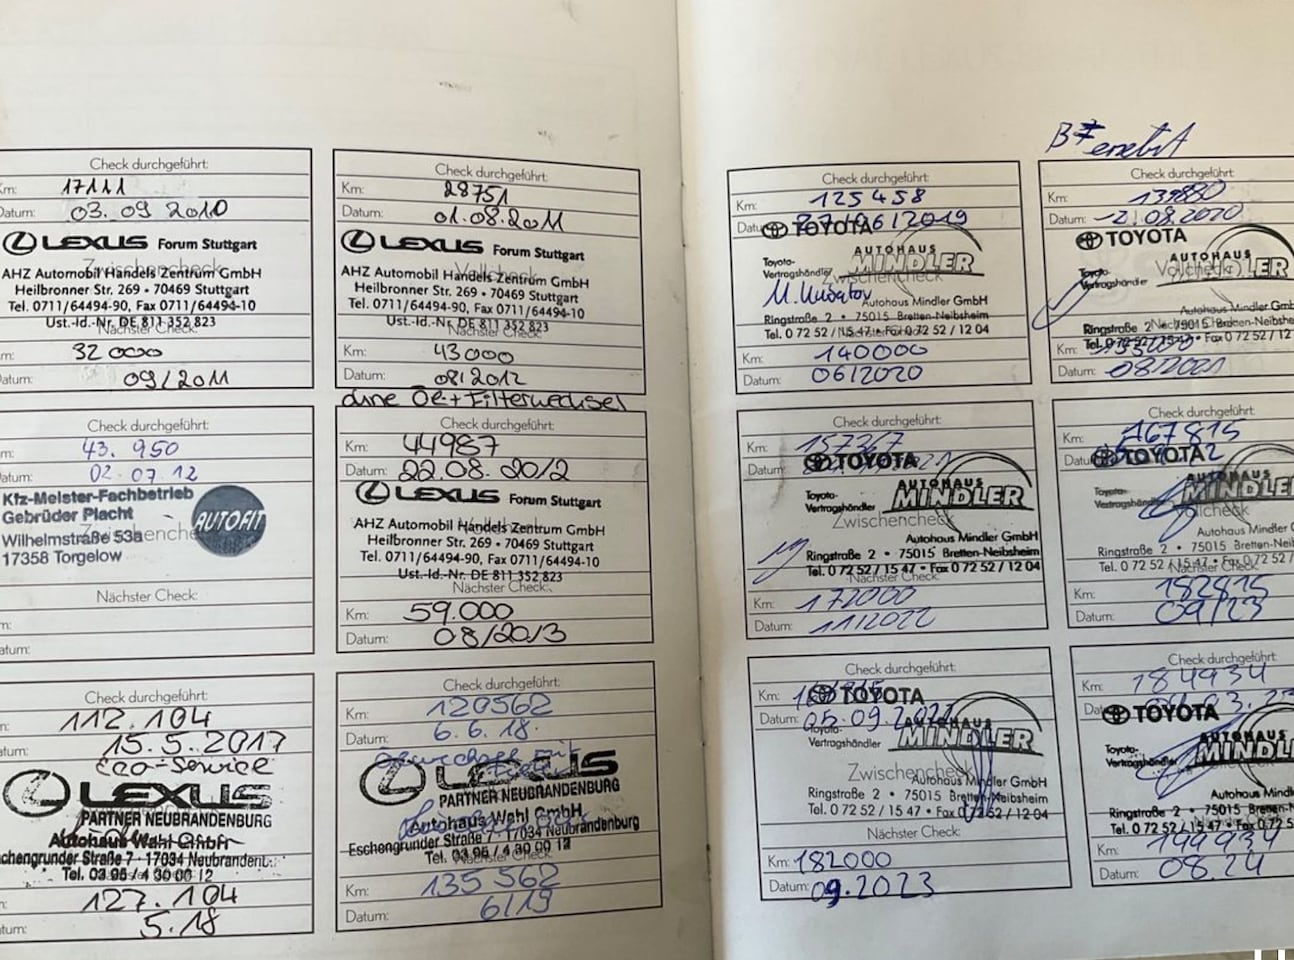 Check durchgeführt:
Km:
17111
Datum: 03. 09 2010
LEXUS Forum Stuttgart
Zwischencheck
AHZ Automobil Handels Zentrum GmbH
Heilbronner Str. 269 • 70469 Stuttgart
Tel. 0711/64494-90, Fax 0711/64494-10
Ust.-Id.-Nr. DE 811 352 823
Nächster Check:
32 000
Datum: 09/2011
Check durchgeführt:
Km: 28751
Datum: 01.08.2011
LEXUS Forum Stuttgart
Vollcheck
AHZ Automobil Handels Zentrum GmbH
Heilbronner Str. 269 • 70469 Stuttgart
Tel. 0711/64494-90, Fax 0711/64494-10
Ust.-Id.-Nr. DE 811 352 823
Nächster Check:
Km: 43000
Datum: 08/2012
Check durchgeführt:
43. 950
Datum: 02.07.12
Kfz-Meister-Fachbetrieb
Gebrüder Placht
AUTOFIT
Zwischencheck
Wilhelmstraße 53a
17358 Torgelow
Nächster Check:
Datum:
ohne Öl + Filterwechsel
Check durchgeführt:
Km: 44987
Datum: 22.08.2012
LEXUS Forum Stuttgart
AHZ Automobil Handels Zentrum GmbH
Heilbronner Str. 269 • 70469 Stuttgart
Tel. 0711/64494-90, Fax 0711/64494-10
Ust.-Id.-Nr. DE 811 352 823
Nächster Check:
Km: 59.000
Datum: 08/2013
Check durchgeführt:
112.104
15.5.2017
Eco-Service
LEXUS
PARTNER NEUBRANDENBURG
Autohaus Wahl GmbH
Eschengrunder Straße 7 · 17034 Neubrandenburg
Tel. 03 95 / 4 30 00 12
127.104
5.18
Check durchgeführt:
Km: 120562
Datum: 6.6.18.
LEXUS
PARTNER NEUBRANDENBURG
Autohaus Wahl GmbH
Eschengrunder Straße 7 · 17034 Neubrandenburg
Tel. 03 95 / 4 30 00 12
Nächster Check:
Km: 135 562
Datum: 6/19
Check durchgeführt:
Km: 125458
Datum: 06/2019
TOYOTA
AUTOHAUS
MINDLER
Toyota-
Vertragshändler
Zwischencheck
Autohaus Mindler GmbH
Ringstraße 2 • 75015 Bretten-Neibsheim
Tel. 0 72 52 / 15 47 • Fax 0 72 52 / 12 04
Km: 140000
Datum: 06/2020
Check durchgeführt:
Km: 139880
Datum: 21.08.2020
TOYOTA
MINDLER
Toyota-
Vertragshändler
Vollcheck
Autohaus Mindler GmbH
Ringstraße 2 • 75015 Bretten-Neibsheim
Nächster Check:
Tel. 0 72 52 / 15 47 • Fax 0 72 52 / 12
Km:
Datum: 08/2021
Check durchgeführt:
Km: 157267
Datum:
TOYOTA
AUTOHAUS
MINDLER
Toyota-
Vertragshändler
Zwischencheck
Autohaus Mindler GmbH
Ringstraße 2 • 75015 Bretten-Neibsheim
Tel. 0 72 52 / 15 47 • Fax 0 72 52 / 12 04
Nächster Check:
Km: 172000
Datum: 11/2022
Check durchgeführt:
Km: 167815
Datum:
TOYOTA
AUTOHAUS
MINDLER
Toyota-
Vertragshändler
Vollcheck
Autohaus Mindler
Ringstraße 2 • 75015 Bretten-Neibs
Tel. 0 72 52 / 15 47 • Fax 0 72 52 /
Nächster Check:
Km: 182815
Datum: 09/23
Check durchgeführt:
Km:
Datum: 05.09.2022
TOYOTA
AUTOHAUS
MINDLER
Toyota-
Vertragshändler
Zwischencheck
Autohaus Mindler GmbH
Ringstraße 2 • 75015 Bretten-Neibsheim
Tel. 0 72 52 / 15 47 • Fax 0 72 52 / 12 04
Nächster Check:
Km: 182000
Datum: 09.2023
Check durchgeführt:
Km: 184934
TOYOTA
AUTOHAUS
MINDLER
Toyota-
Vertragshändler
Autohaus Mindler
Ringstraße 2 • 75015 Bretten-N
Tel. 0 72 52 / 15 47 • Fax 0 72 52
Km: 199934
Datum: 08.24